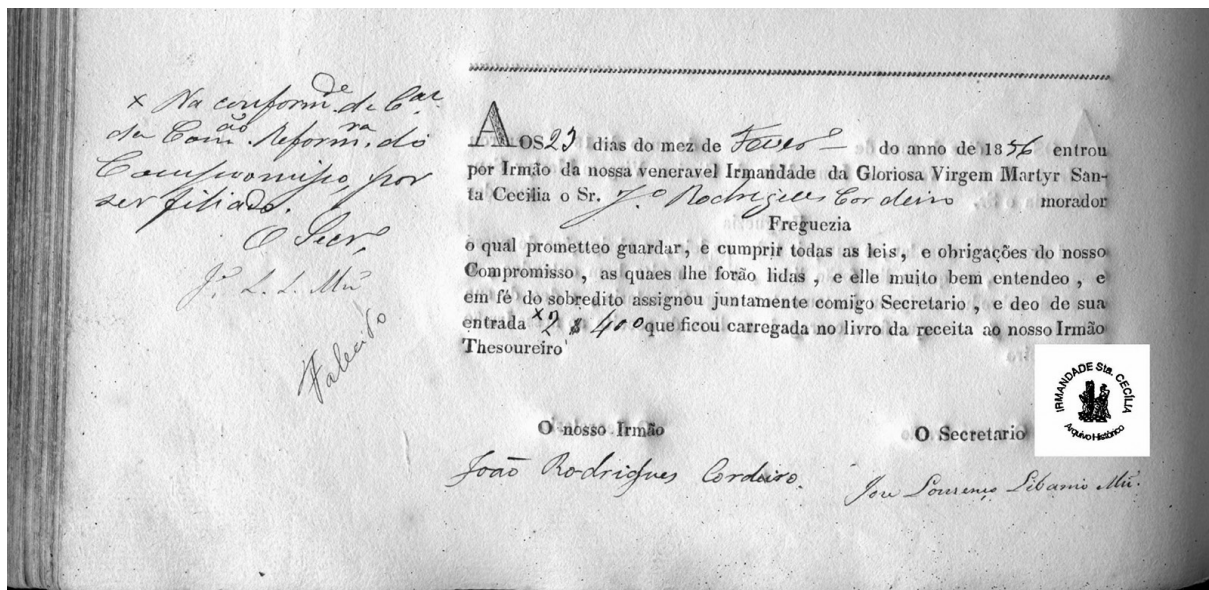 x Na conform.de de Car
da Com.ão Reform.ra do
Compromisso, por
ser filiado.
O Secr.
J. L. L. Mü
Falecido
AOS 23 dias do mez de Fever.o do anno de 1856 entrou
por Irmão da nossa veneravel Irmandade da Gloriosa Virgem Martyr San-
ta Cecilia o Sr. J.o Rodrigues Cordeiro morador
Freguezia
o qual prometteo guardar, e cumprir todas as leis, e obrigações do nosso
Compromisso, as quaes lhe forão lidas, e elle muito bem entendeo, e
em fé do sobredito assignou juntamente comigo Secretario, e deo de sua
entrada x 2$400 que ficou carregada no livro da receita ao nosso Irmão
Thesoureiro
IRMANDADE Sta. CECÍLIA
Arquivo Histórico
O nosso Irmão
O Secretario
João Rodrigues Cordeiro.
Jose Lourenço Libanio Mü.